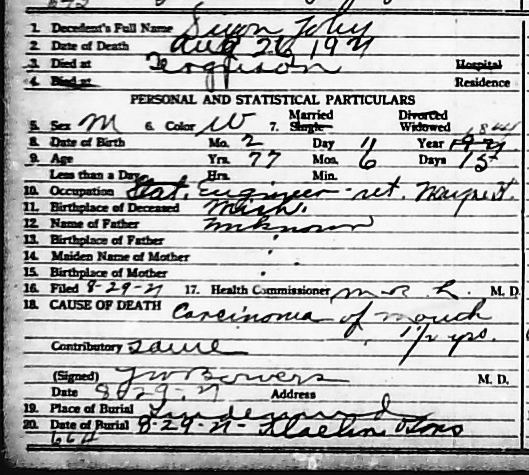 1. Decedent's Full Name Swon John
2. Date of Death Aug 26 1921
3. Died at Ferguson Hospital
4. Died at Residence
PERSONAL AND STATISTICAL PARTICULARS
5. Sex M 6. Color W 7. Married Single Divorced Widowed
8. Date of Birth Mo. 2 Day 11 Year 1844
9. Age Yrs. 77 Mos. 6 Days 15
Less than a Day Hrs. Min.
10. Occupation Stat. Engineer - ret.
11. Birthplace of Deceased Mich.
12. Name of Father unknown
13. Birthplace of Father "
14. Maiden Name of Mother "
15. Birthplace of Mother "
16. Filed 8-29-21 17. Health Commissioner M. R. L. M. D.
18. CAUSE OF DEATH Carcinoma of mouth
1 1/2 yrs.
Contributory same
(Signed) Bowers M. D.
Date 8-29-21 Address
19. Place of Burial
20. Date of Burial 8-29-21 - & Sons